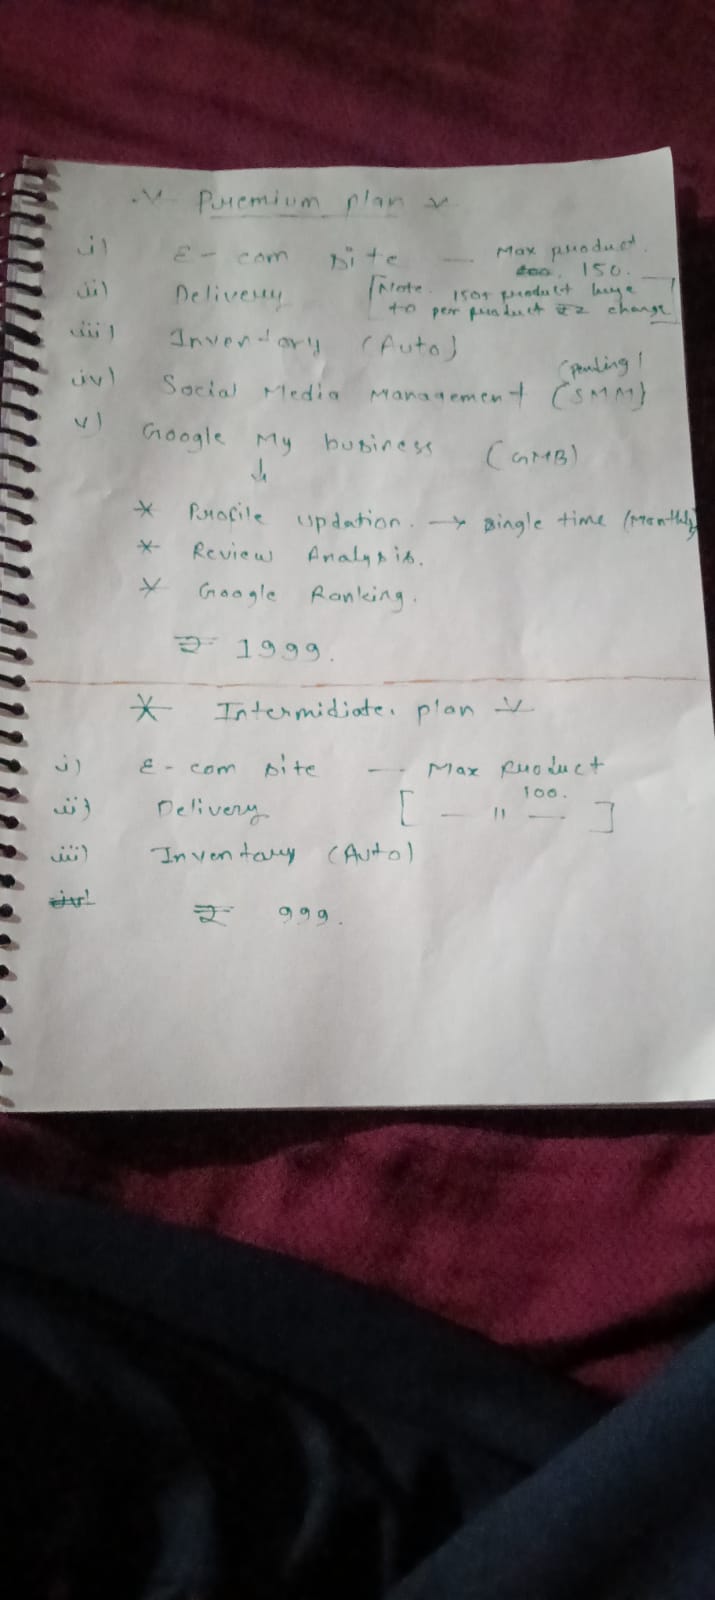 Premium plan
i) E-com site — Max product.
150.
ii) Delivery [Note. 150+ product huye
to per product ₹2 charge]
iii) Inventory (Auto)
(pending)
iv) Social Media Management (SMM)
v) Google My business (GMB)
↓
* Profile updation. → single time (Monthly)
* Review Analysis.
* Google Ranking.
₹ 1999.
* Intermidiate. plan
i) E-com site — Max Product
100.
ii) Delivery [ — 11 — ]
iii) Inventary (Auto)
₹ 999.